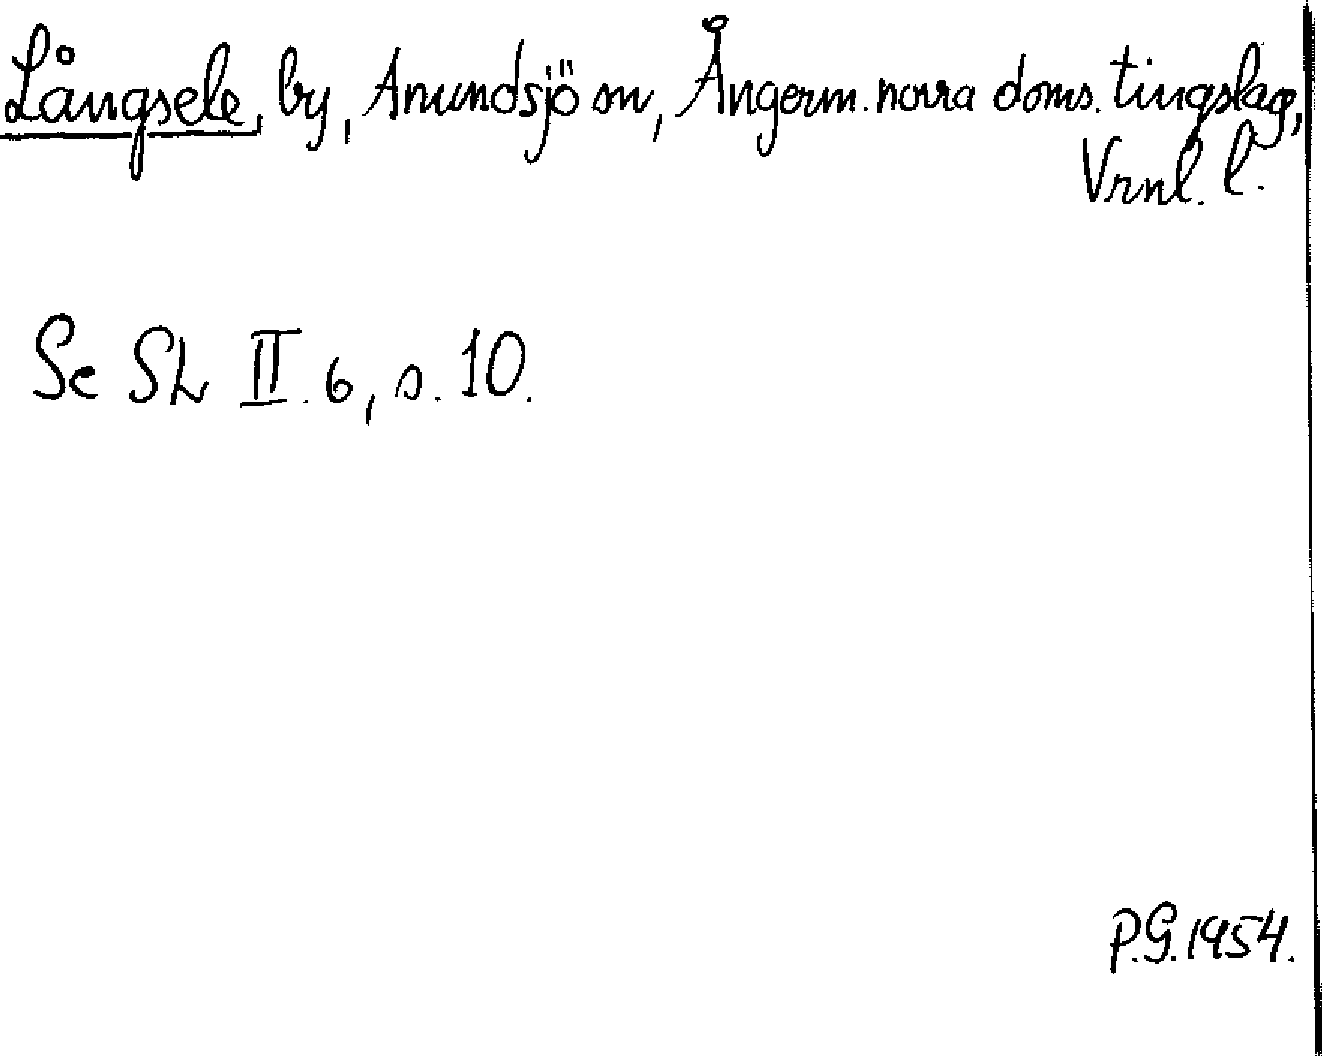 Långsele, by, Anundsjö sn, Ångerm. norra doms. tingslag,
Vrnl. l.
Se SL II. 6, s. 10.
P.G. 1954.